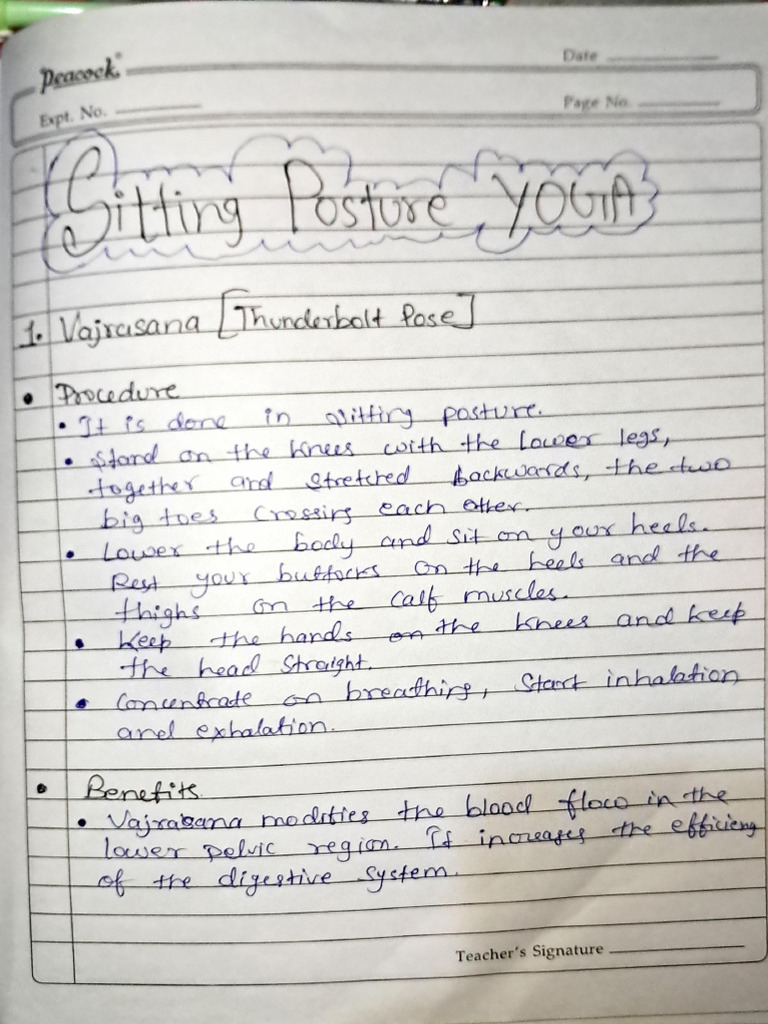 Peacock
Date
Expt. No.
Page No.
Sitting Posture YOGA
1. Vajrasana [Thunderbolt Pose]
• Procedure
• It is done in sitting posture.
• Stand on the knees with the lower legs,
together and stretched backwards, the two
big toes crossing each other.
• Lower the body and sit on your heels.
Rest your buttocks on the heels and the
thighs on the calf muscles.
• Keep the hands on the knees and keep
the head straight.
• Concentrate on breathing, Start inhalation
and exhalation.
• Benefits
• Vajrasana modifies the blood flow in the
lower pelvic region. It increases the efficieng
of the digestive system.
Teacher's Signature